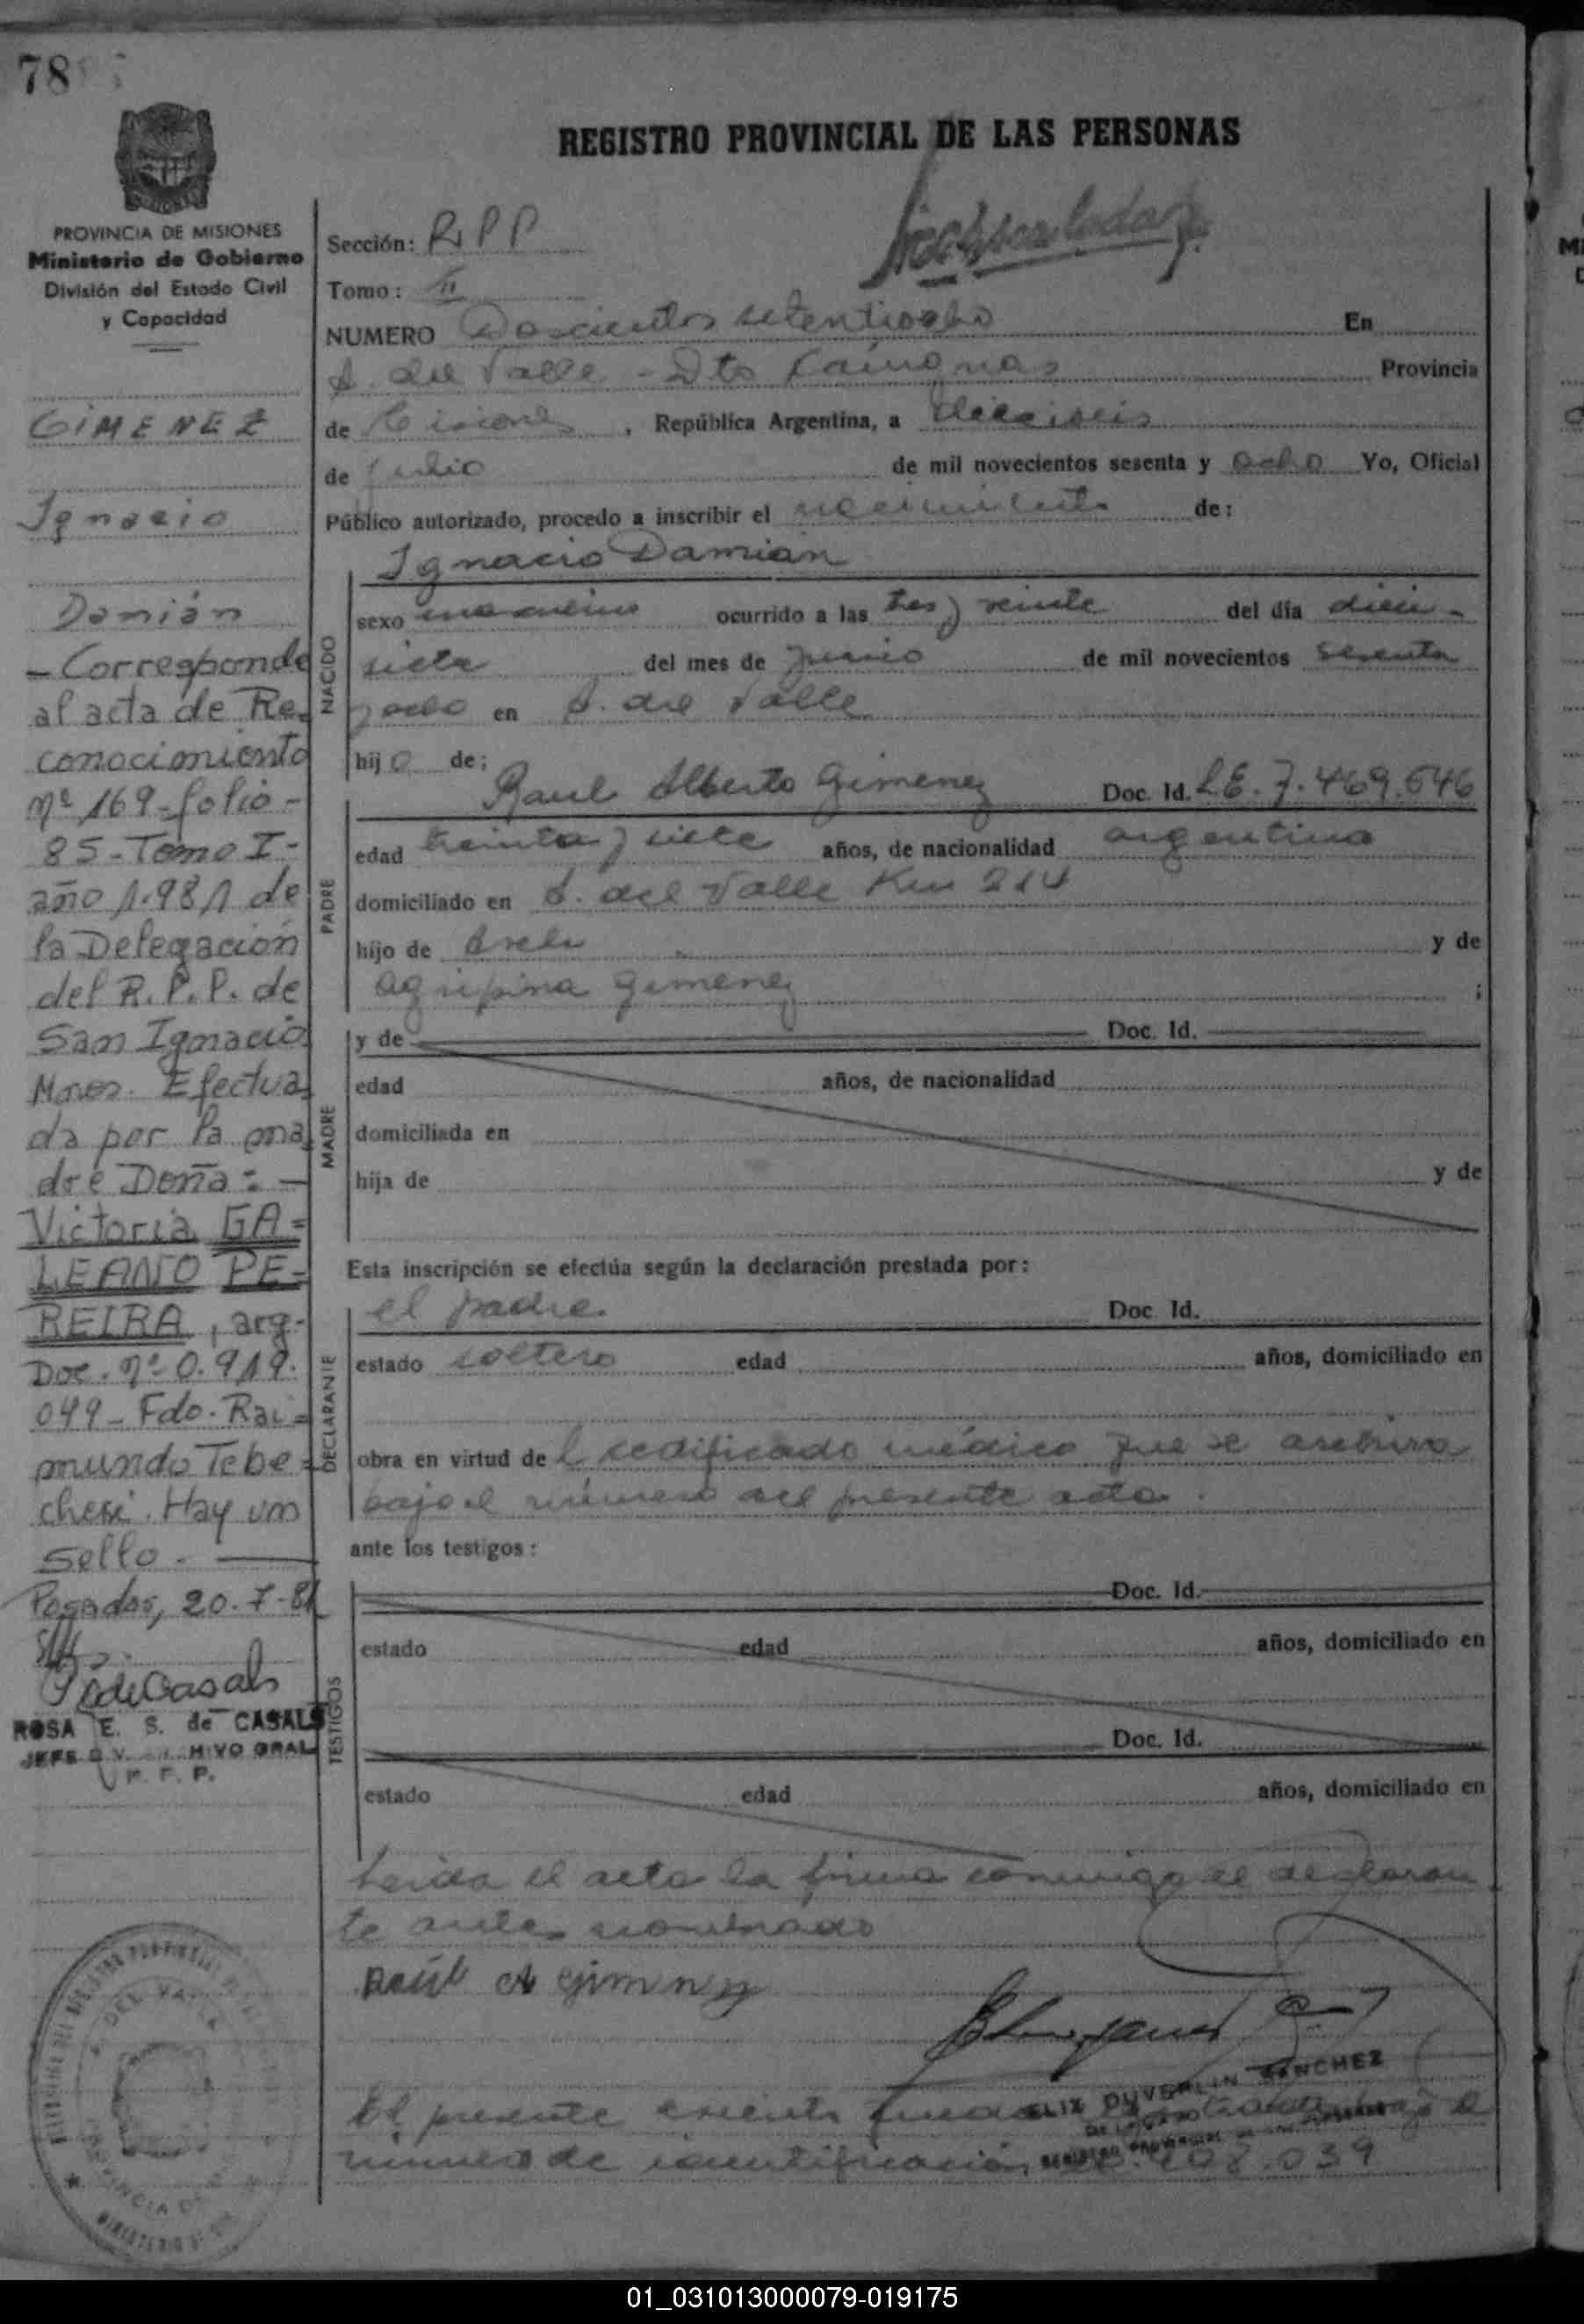 78
REGISTRO PROVINCIAL DE LAS PERSONAS
PROVINCIA DE MISIONES
Ministerio de Gobierno
División del Estado Civil
y Capacidad
GIMENEZ
Ignacio
Damián
- Corresponde
al acta de Re-
conocimiento
nº 169 - folio -
85 - Tomo I -
año 1.981 de
la Delegación
del R.P.P. de
San Ignacio
Mnes. Efectua
da por la ma
dre Doña: -
Victoria GA=
LEANO PE=
REIRA, arg.
Doc. nº 0.919.
049 - Fdo. Rai=
mundo Tebe=
chesi. Hay un
sello. -
Posadas, 20-7-81
ROSA E. S. de CASALS
JEFE HIVO GRAL
Sección: R P P
Tomo: II
NUMERO Doscientos setentiocho En
A. del Valle - Dto Cainguas Provincia
de Misiones, República Argentina, a dieciseis
de julio de mil novecientos sesenta y ocho Yo, Oficial
Público autorizado, procedo a inscribir el nacimiento de:
Ignacio Damian
NACIDO
sexo masculino ocurrido a las tres y veinte del día dieci-
siete del mes de junio de mil novecientos sesenta
y ocho en A. del Valle
hijo de:
Raul Alberto Gimenez Doc. Id. L.E. 7.469.546
PADRE
edad treinta y siete años, de nacionalidad argentina
domiciliado en A. del Valle Km 214
hijo de y de
Agripina Gimenez ;
MADRE
y de Doc. Id.
edad años, de nacionalidad
domiciliada en
hija de y de
Esta inscripción se efectúa según la declaración prestada por:
DECLARANTE
el padre. Doc. Id.
estado soltero edad años, domiciliado en
obra en virtud del certificado médico que se archiva
bajo el número del presente acta.
ante los testigos:
TESTIGOS
Doc. Id.
estado edad años, domiciliado en
Doc. Id.
estado edad años, domiciliado en
Leida el acta la firma conmigo el declaran
te antes nombrado
Raúl A Gimnez
DUVERLIN SANCHEZ
El presente
número de identificación 039
01_031013000079-019175